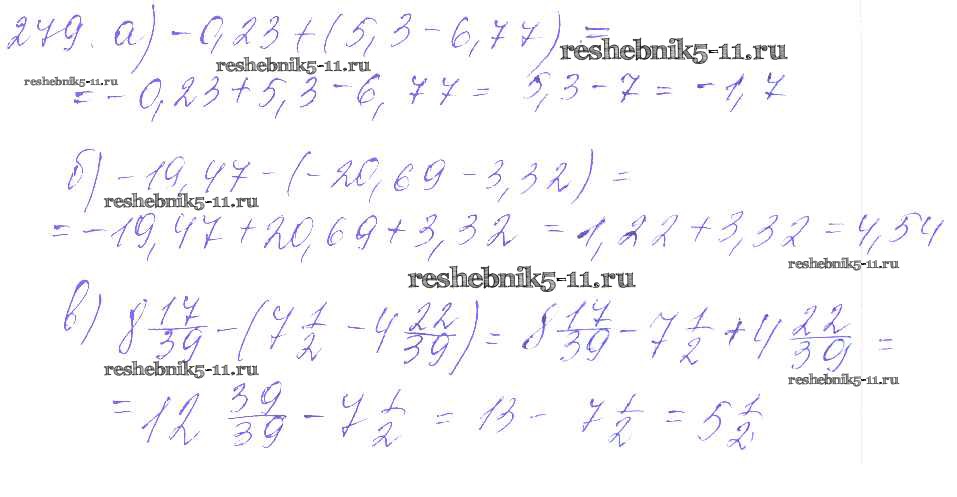 279. а) -0,23 + (5,3 - 6,77) =
reshebnik5-11.ru
reshebnik5-11.ru
reshebnik5-11.ru
= -0,23 + 5,3 - 6,77 = 5,3 - 7 = -1,7
б) -19,47 - (-20,69 - 3,32) =
reshebnik5-11.ru
= -19,47 + 20,69 + 3,32 = 1,22 + 3,32 = 4,54
reshebnik5-11.ru
reshebnik5-11.ru
в) 8 17/39 - (7 1/2 - 4 22/39) = 8 17/39 - 7 1/2 + 4 22/39 =
reshebnik5-11.ru
reshebnik5-11.ru
= 12 39/39 - 7 1/2 = 13 - 7 1/2 = 5 1/2.